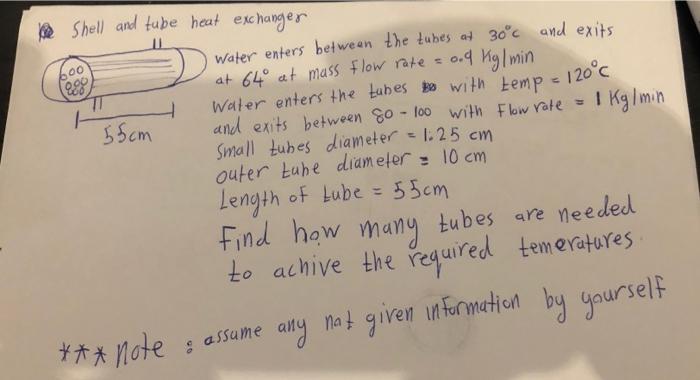 Shell and tube heat exchanger
Water enters between the tubes at 30°c and exits
at 64° at mass flow rate = 0.9 Kg/min
Water enters the tubes with temp = 120°C
and exits between 80 - 100 with Flow rate = 1 Kg/min
55cm
Small tubes diameter = 1.25 cm
outer tube diameter = 10 cm
Length of tube = 55cm
Find how many tubes are needed
to achive the required temeratures.
*** note : assume any not given information by yourself